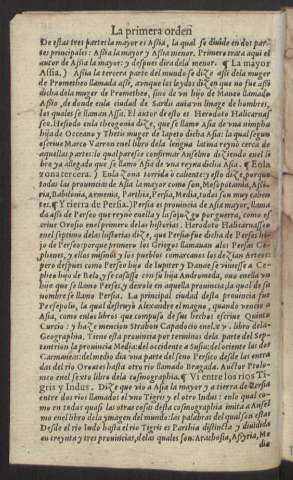 La primera orden
De estas tres partes la mayor es Assia, la qual se diuide en dos par-
tes principales: Assia la mayor y Assia menor. Primero trata aqui el
autor de Assia la mayor: y despues dira dela menor. ¶ La mayor
Assia,) Assia la tercera parte del mundo se dize assi dela muger
de Prometheo llamada assi, aunque los leydos dizen que no fue assi
dicha dela muger de Prometheo, sino de vn hijo de Maneo llamado
Assio, de donde enla ciudad de Sardis auia vn linage de hombres,
los quales se llaman Assa. El autor de esto es Herodoto Halicarnas-
seo. Hesiodo enla theogonia dize, que se llamo Asia de vna nimpha
hija de Oceano y Thetis muger de Iapeto dicha Asia: la qual segun
escriue Marco Varron enel libro dela lengua latina reynò cerca de
aquellas partes: lo qual parece confirmar Anselmo diziendo enel li-
bro ya allegado que se llamo Asia de vna reyna dicha Asia. ¶ Enla
zona tercera.) Enla zona torrida ò caliente: y esto dize, porque
todas las prouincias de Asia la mayor como son, Mesopotamia, Assi-
ria, Babilonia, Armenia, Parthia, Persia, Media, todas son muy calien-
tes. ¶ Y tierra de Persia.) Persia es prouincia de Asia mayor, llama-
da assi de Perseo que reyno enella y la sojuzgo por guerra, como es-
criue Orosio enel primero delas historias. Herodoto Halicarnasseo
enel septimo delas historias dize, que Persia fue dicha de Perses hi-
jo de Perseo: porque primero los Griegos llamauan alos Persas Ce-
phenes, y ellos mismos y los pueblos comarcanos los dezian Arteos:
pero despues como Perseo hijo de Iupiter y Danae se viniesse a Ce-
pheo hijo de Belo, y se casasse con su hija Andromada, vuo enella vn
hijo que se llamo Perses, y dexole en aquella prouincia, la qual de su
nombre se llamo Persia. La principal ciudad desta prouincia fue
Persepolis, la qual destruyò Alexandre el magno, quando vencio a
Asia, como enlos libros que compuso de sus hechos escriue Quinto
Curcio: y haze mencion Strabon Capadocio enel xv. libro dela
Geographia. Tiene esta prouincia por terminos dela parte del Sep-
tentrion la prouincia Media: del occidente a Susia: del oriente las dos
Carmaneas: del medio dia vna parte del seno Persico desde las entra-
das del rio Oroates hasta otro rio llamado Bragada. Auctor Ptolo-
meo enel sexto libro dela cosmographia. ¶ Vi entre los rios Ti-
gris y Indus. Dize que vio a Asia la mayor y a tierra de Persia
entre dos rios llamados el vno Tigris y el otro Indus: enlo qual co-
mo en todas quasi las otras cosas desta cosmographia imita a Ansel-
mo enel libro dela ymagen del mundo: las palabras del qual son estas
Desde el rio Indo hasta el rio Tigris es Parthia distincta y diuidida
en treynta y tres prouincias, delas quales son: Arachosia, Assyria, Me
dia